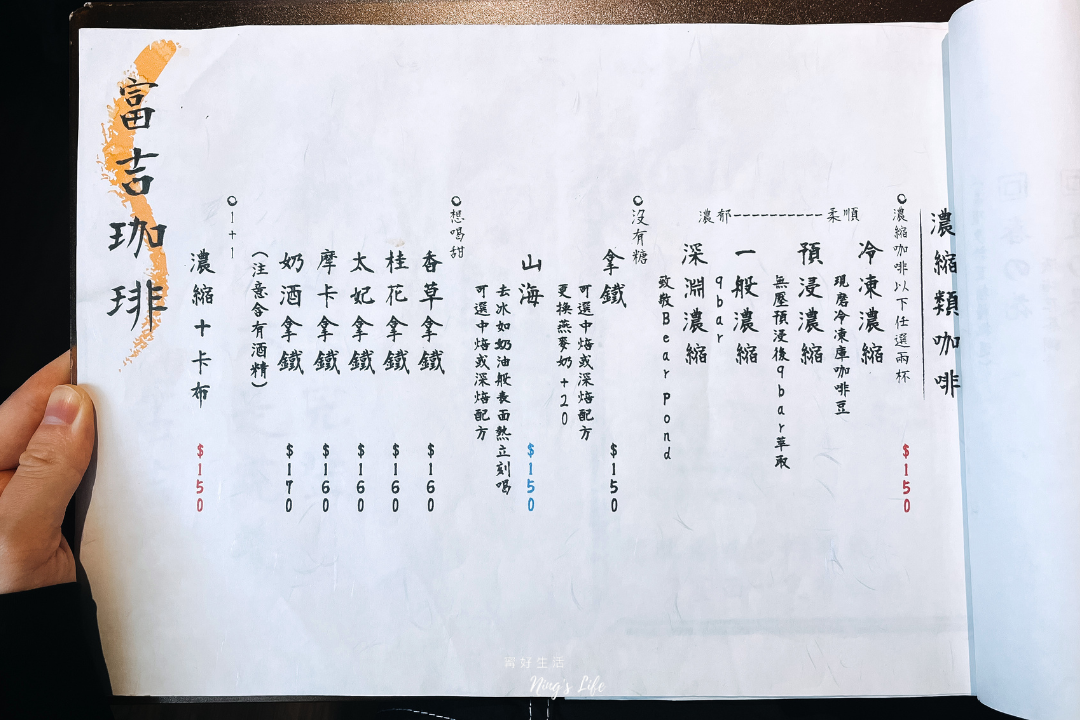 濃縮類咖啡
濃縮咖啡以下任選兩杯
$150
濃郁----------柔順
冷凍濃縮
現磨冷凍庫咖啡豆
預浸濃縮
無壓預浸後9bar萃取
一般濃縮
9bar
深淵濃縮
致敬Bear Pond
沒有糖
拿鐵
$150
可選中焙或深焙配方
更換燕麥奶+20
山海
$150
去冰如奶油般表面熱立刻喝
可選中焙或深焙配方
想喝甜
香草拿鐵
$160
桂花拿鐵
$160
太妃拿鐵
$160
摩卡拿鐵
$160
奶酒拿鐵
$170
(注意含有酒精)
1+1
濃縮+卡布
$150
富吉珈琲
甯好生活
Ning's Life